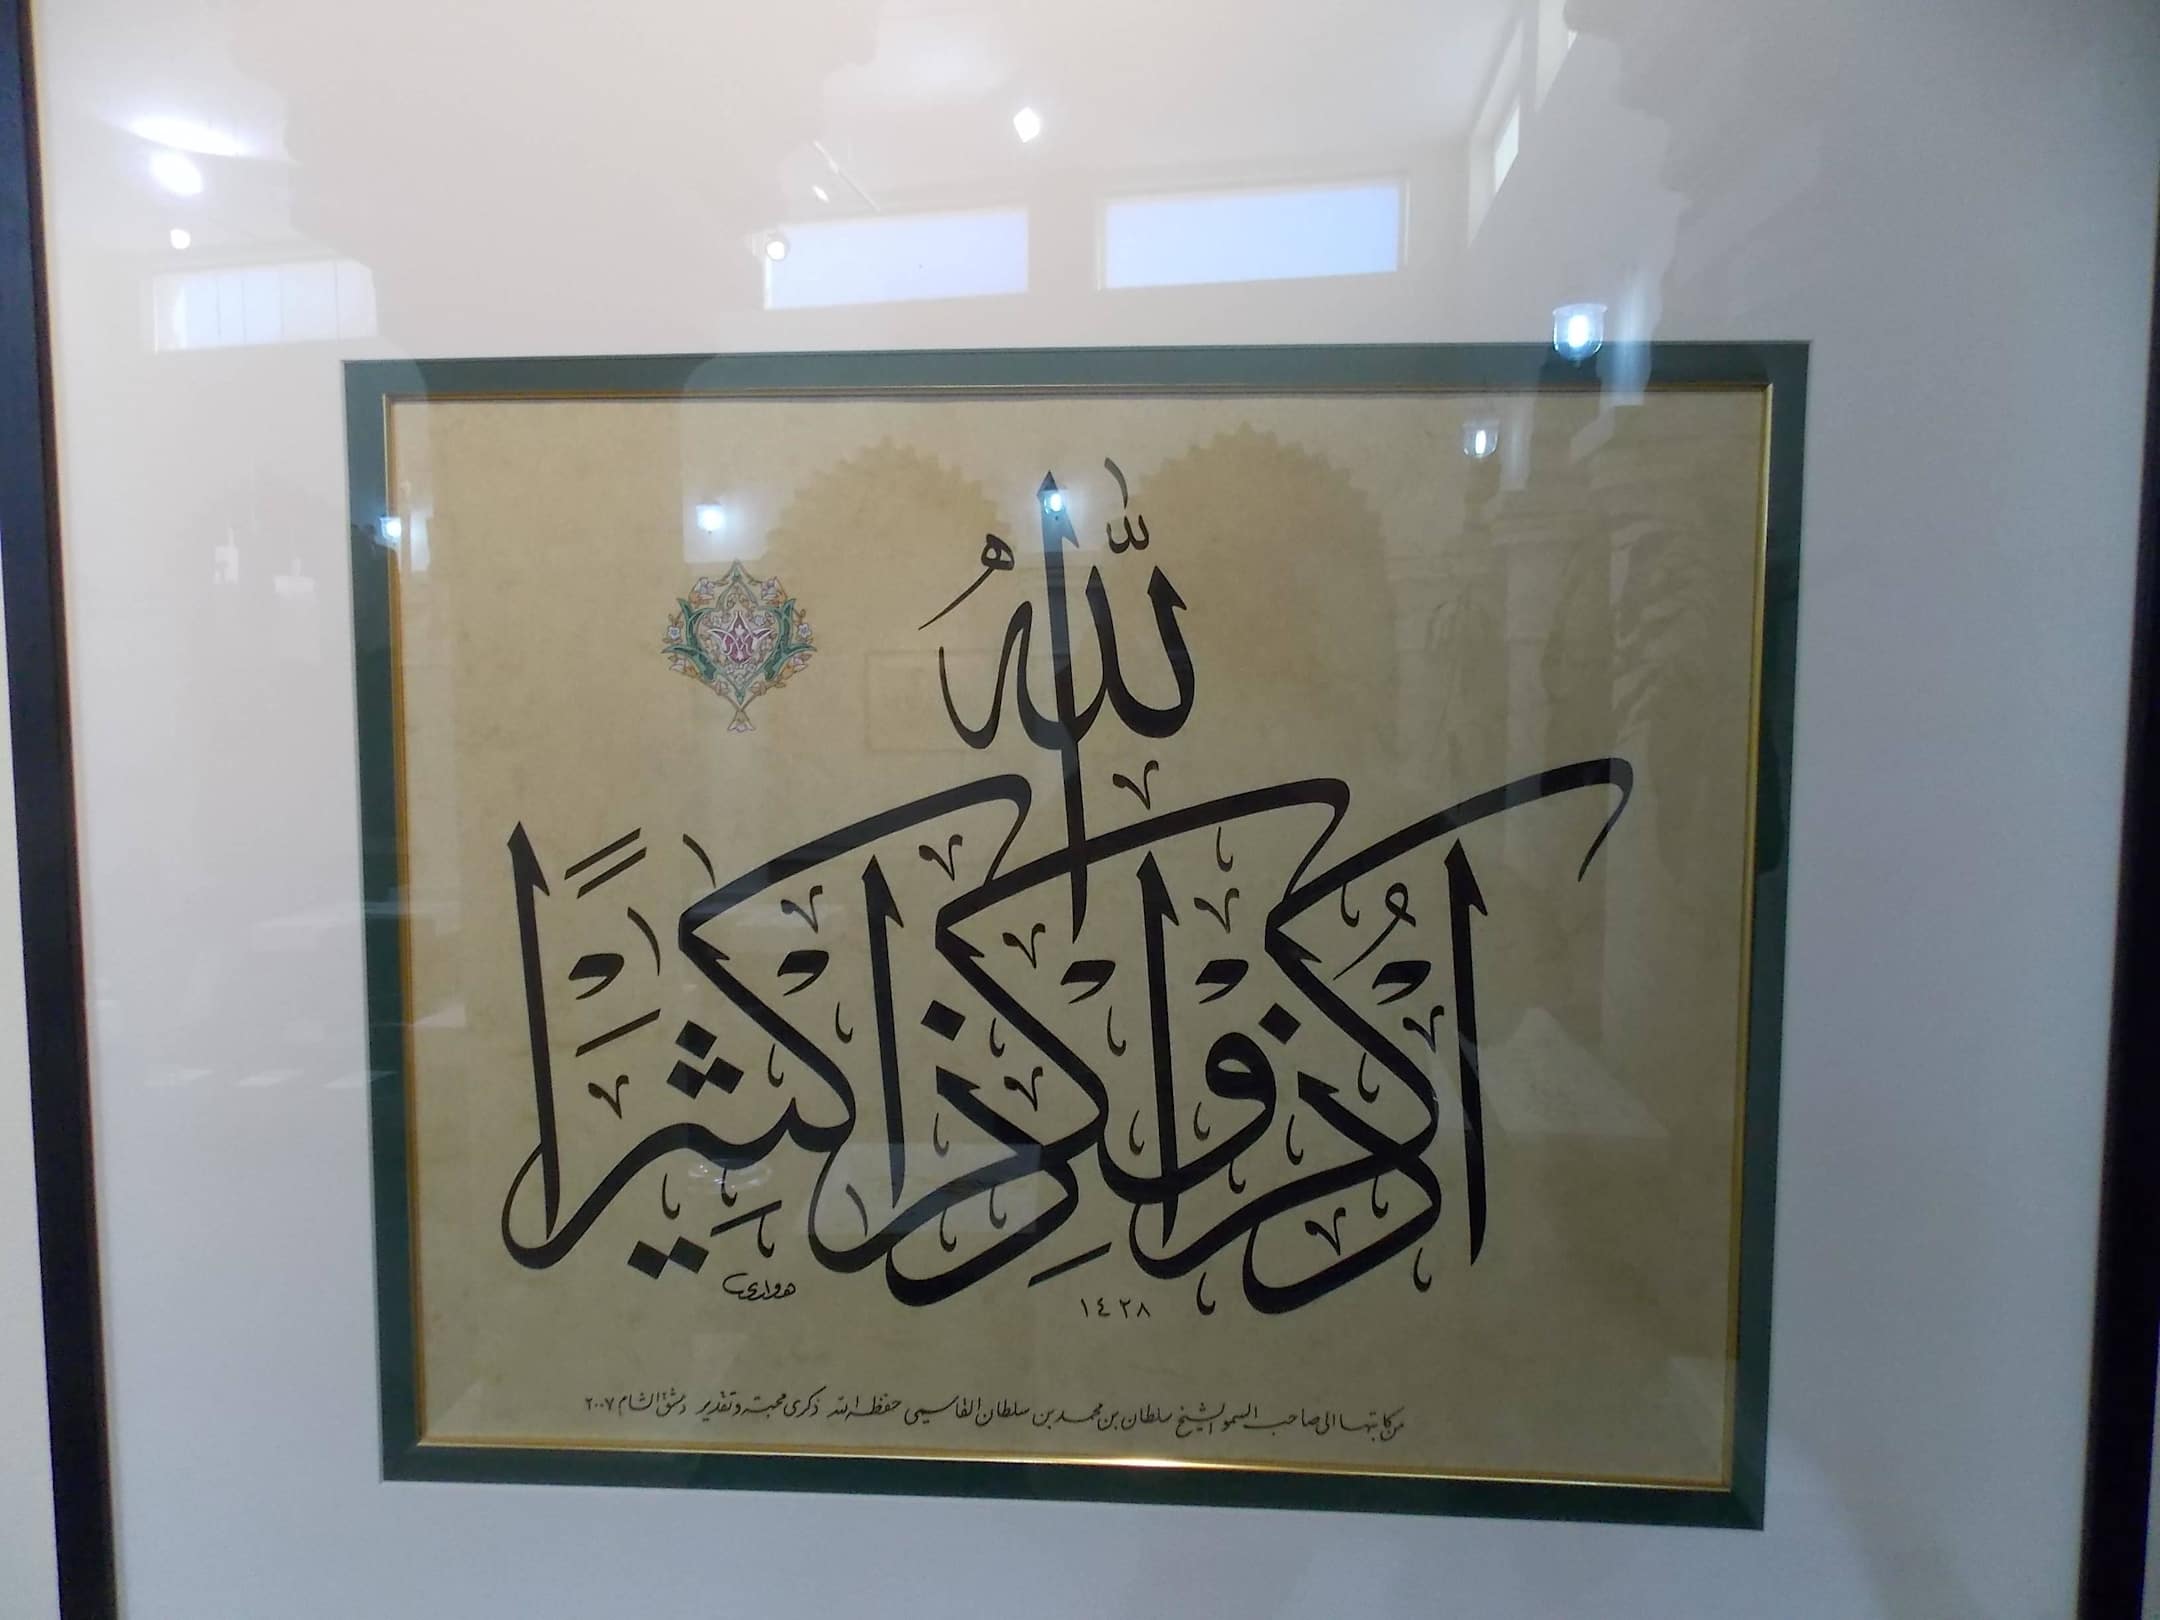 اذْكُرُوا اللّٰهَ ذِكْرًا كَثِيرًا
هواري
١٤٢٨
من كاتبها الى صاحب السمو الشيخ سلطان بن محمد بن سلطان القاسمي حفظه الله ذكرى محبة وتقدير دمشق الشام ٢٠٠٧